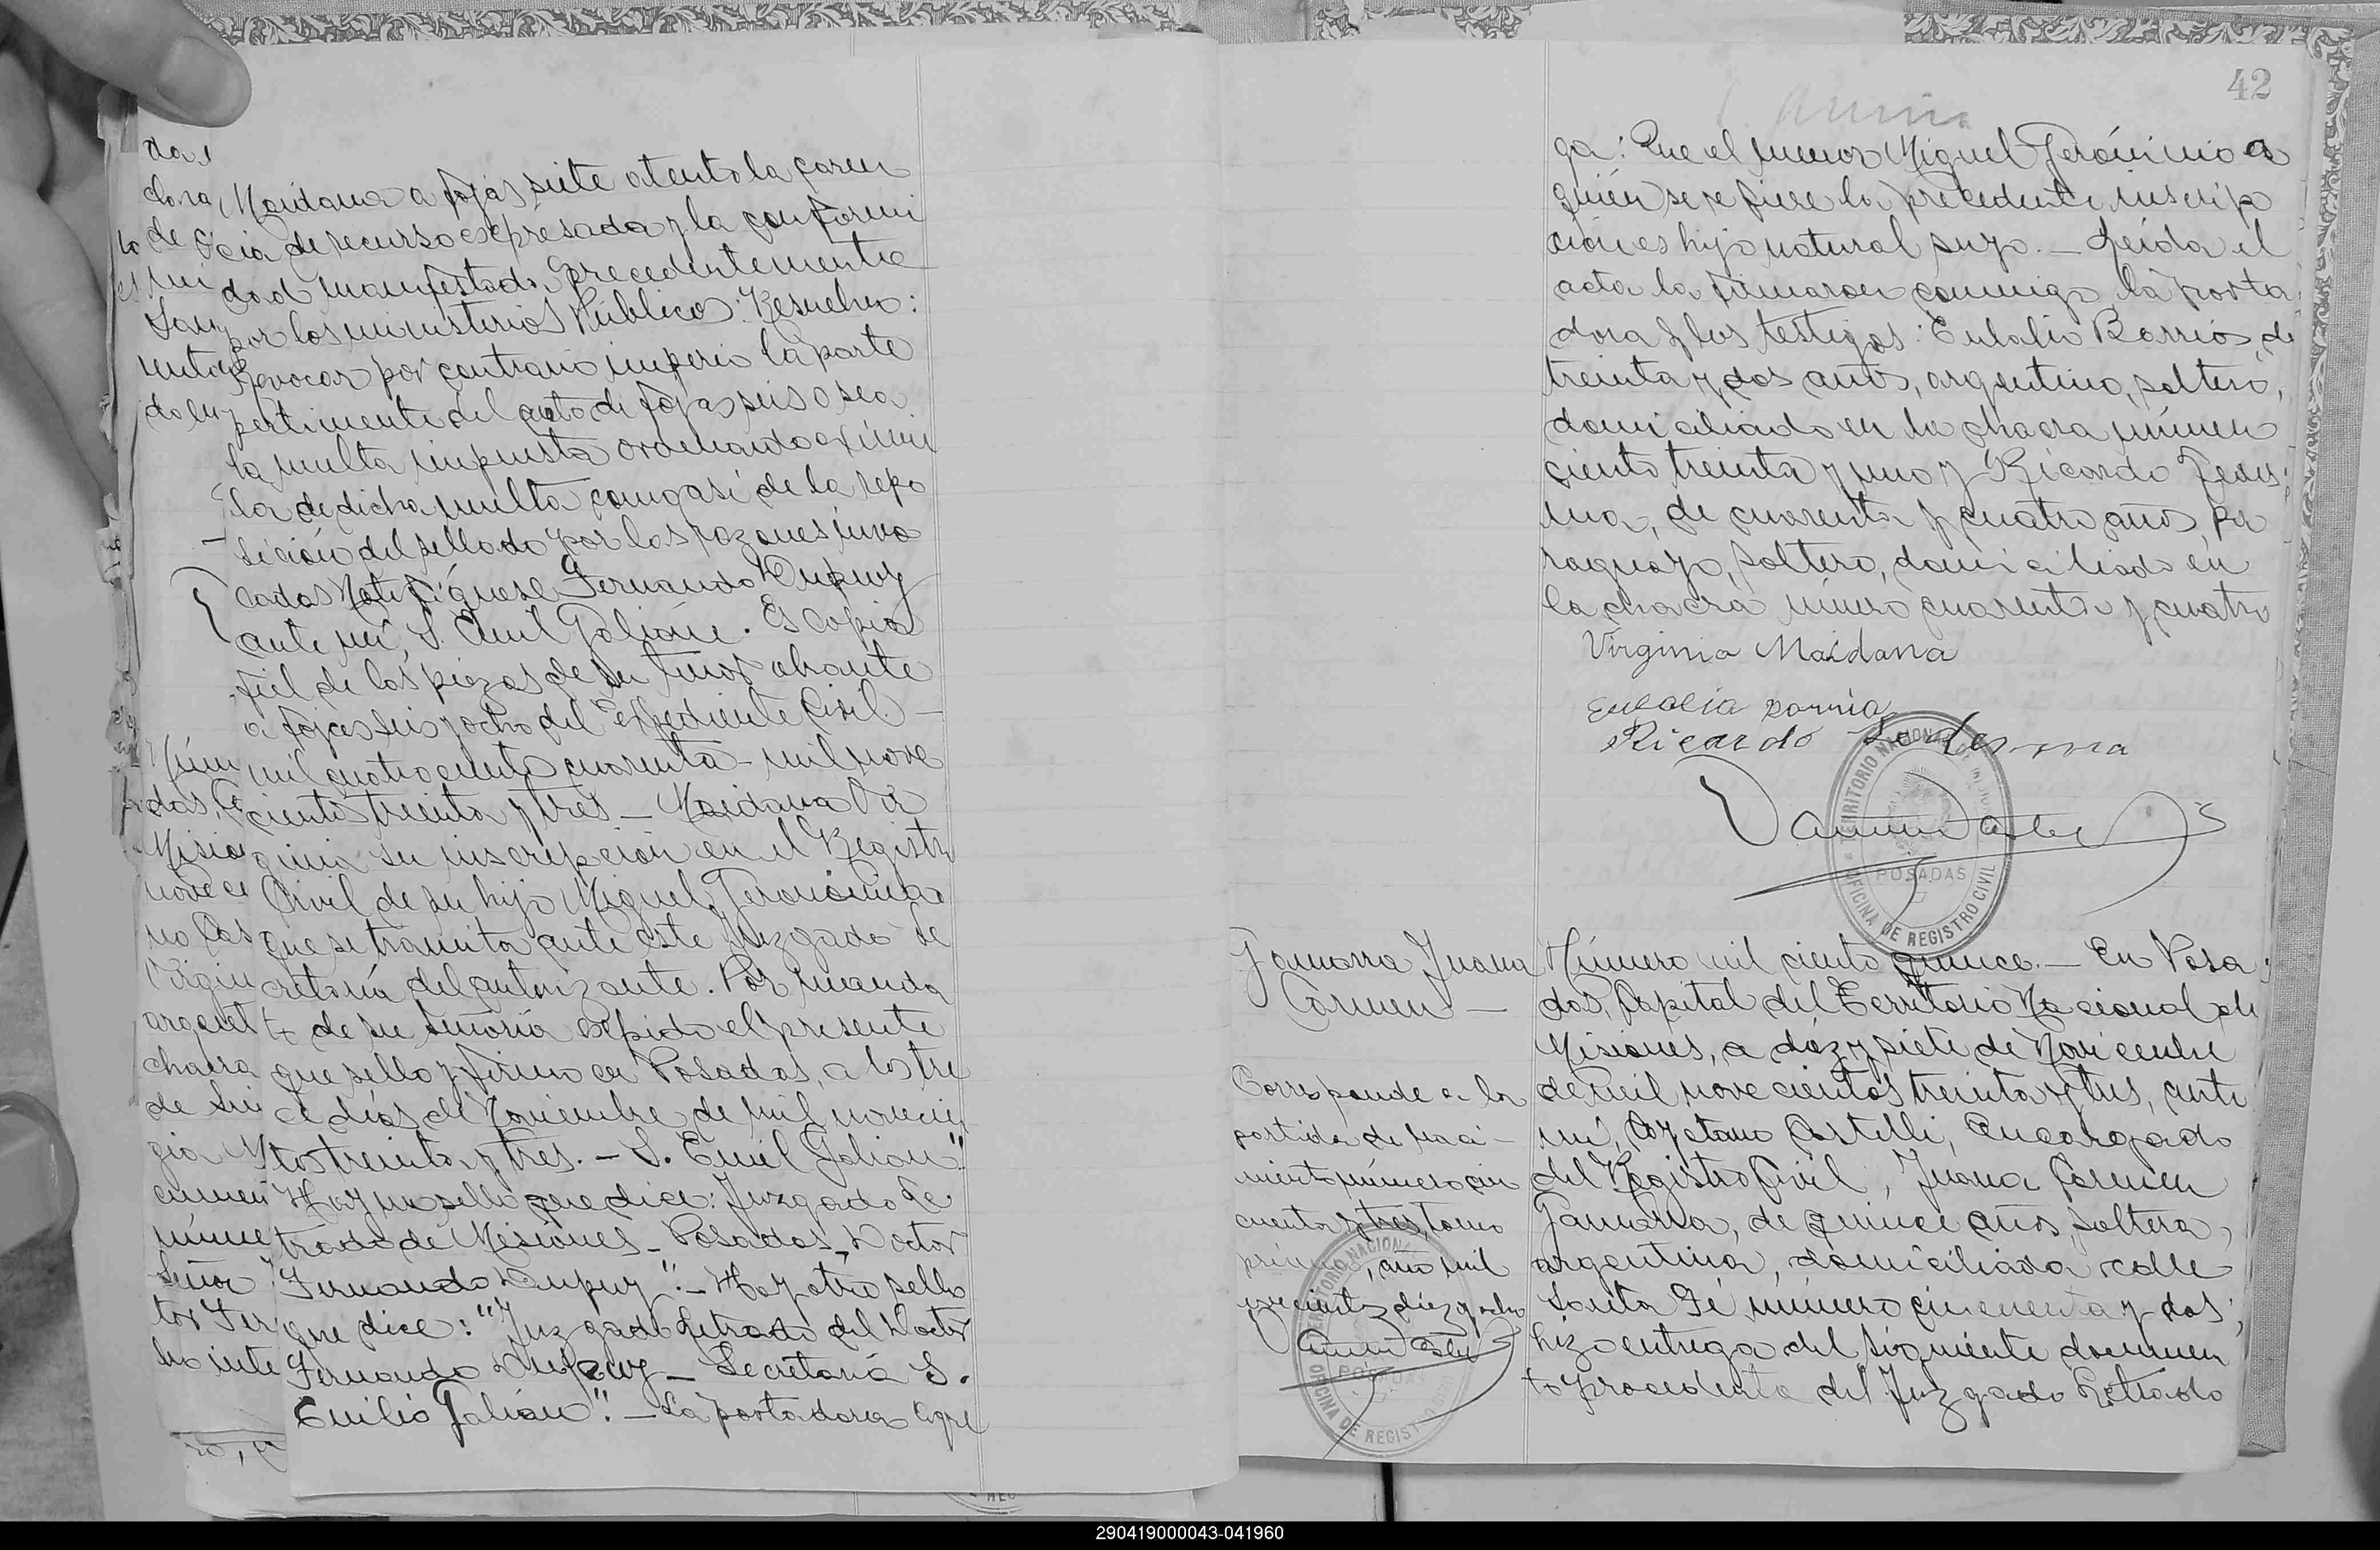 Maidana a fojas siete atento la caren
cia de recurso expresada y la conformi
dad manifestada precedentemente
por los ministerios Público: Resuelvo:
Revocar por contrario imperio la parte
pertinente del auto de fojas seis o sea
la multa impuesta ordenando eximir
la de dicha multa como asi de la repo
sición del sellado por las razones invo
cadas Notifíquese Fernando Dupuy
ante mí, S. Emil Galián. Es copia
fiel de las piezas de su tenor obrante
a fojas seis y ocho del expediente Civil
mil cuatrocientos cuarenta - mil nove
cientos treinta y tres - Maidana Vir
ginia su inscripción en el Registro
Civil de su hijo Miguel Gerónimo
que se tramita ante este Juzgado Se
cretaría del autorizante. Por manda
to de su Señoría expido el presente
que sello y firmo en Posadas, a los tre
ce días de Noviembre de mil novecien
tos treinta y tres. - S. Emil Galian"
Hay un sello que dice: Juzgado Le
trado de Misiones - Posadas - Doctor
Fernando Dupuy". - Hay otro sello
que dice: "Juzgado Letrado del Doctor
Fernando Dupuy - Secretaría S.
Emilio Galián". - La portadora agre
42
ga: Que el menor Miguel Gerónimo a
quién se refiere la precedente inscrip
ción es hijo natural suyo. - Leída el
acta la firmaron conmigo, la porta
dora y los testigos: Eulalio Barrios, de
treinta y dos años, argentino, soltero,
domiciliado en la chacra número
ciento treinta y uno y Ricardo Ledes
ma, de cuarenta y cuatro años, pa
raguayo, soltero, domiciliado en
la chacra número cuarenta y cuatro
Virginia Maidana
Ricardo Ledesma
TERRITORIO NACIONAL
POSADAS
OFICINA DE REGISTRO CIVIL
Gamarra Juana
Carmen -
Corresponde a la
partida de naci-
miento número cin
cuenta y tres, tomo
, año mil
novecientos diez y ocho
TERRITORIO NACIONAL
POSADAS
OFICINA DE REGISTRO CIVIL
Número mil ciento quince. - En Posa
das, Capital del Territorio Nacional de
Misiones, a diez y siete de Noviembre
de mil novecientos treinta y tres, ante
mí, Cayetano Castelli, Encargado
del Registro Civil, Juana Carmen
Gamarra, de quince años, soltera,
argentina, domiciliada calle
Santa Fé número cincuenta y dos;
hizo entrega del siguiente documen
to procedente del Juzgado Letrado
290419000043-041960